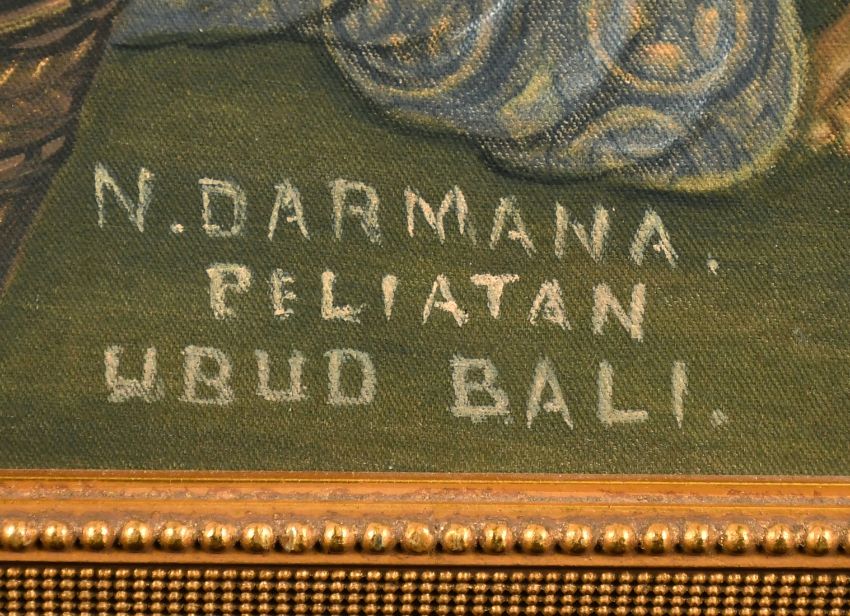 N. DARMANA.
PELIATAN
UBUD BALI.